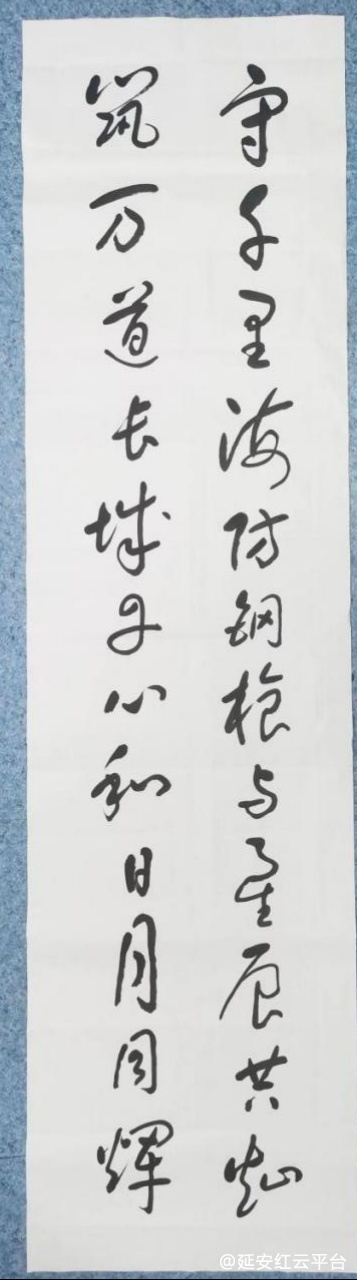 守千里海防钢枪与星辰共灿
筑万道长城丹心和日月同辉
@延安红云平台